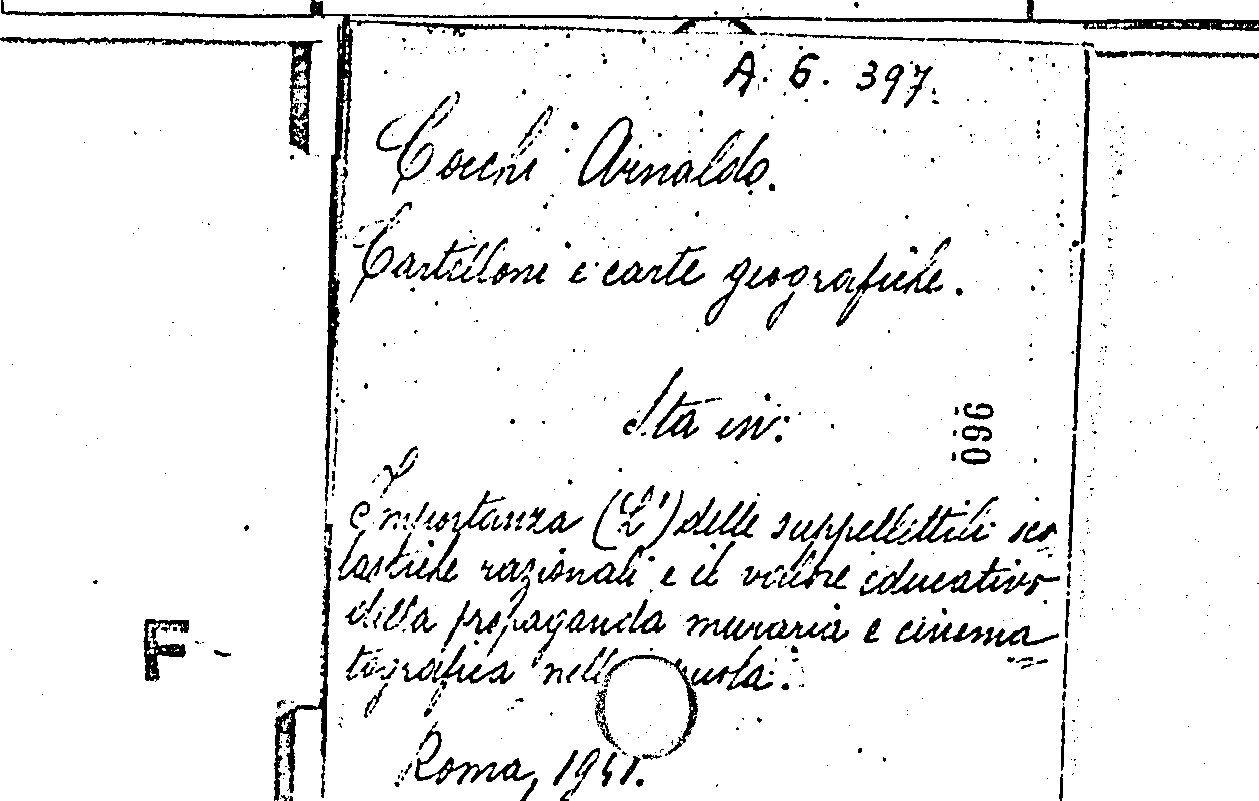 A. 6. 397.
Cocchi Arnaldo.
Cartelloni e carte geografiche.
Sta in:
960
Importanza (L') delle suppellettili sco
lastiche razionali e il valore educativo
della propaganda muraria e cinema
tografica nell
F
Roma, 1941.